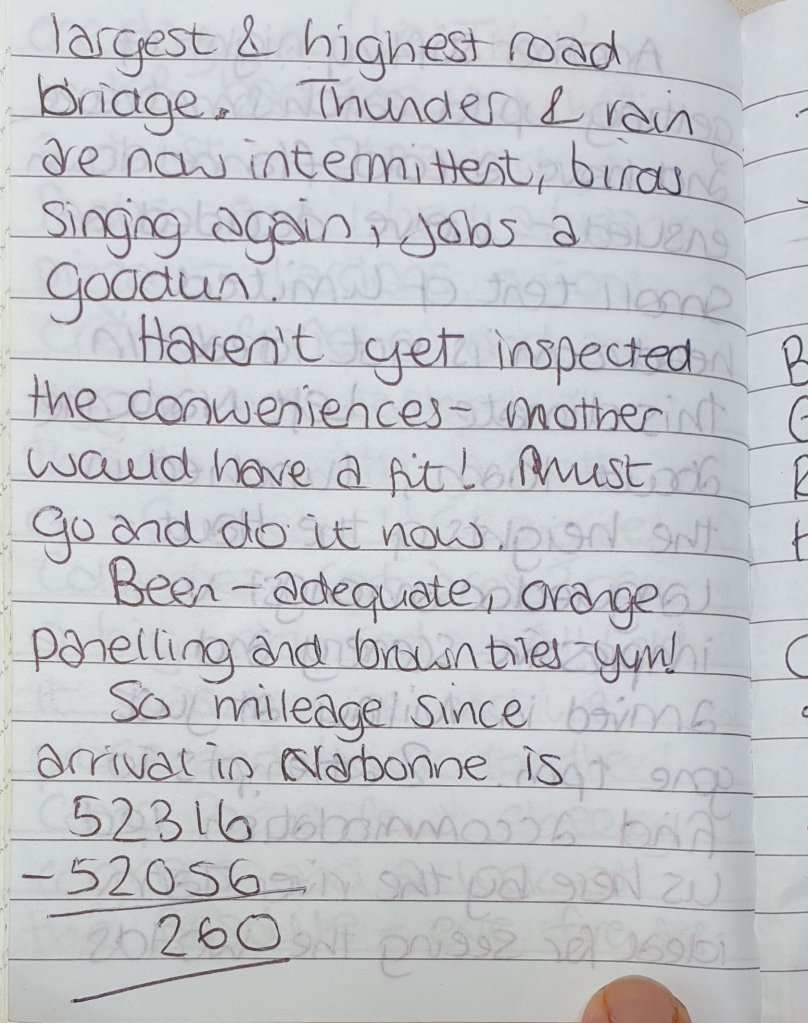 largest & highest road
bridge. Thunder & rain
are now intermittent, birds
singing again, jobs a
goodun.
Haven't yet inspected
the conveniences - mother
would have a fit! Must
go and do it now.
Been - adequate, orange
panelling and brown tiles - yum!
So mileage since
arrival in Narbonne is
52316
- 52056
260
B
C
R
t
C